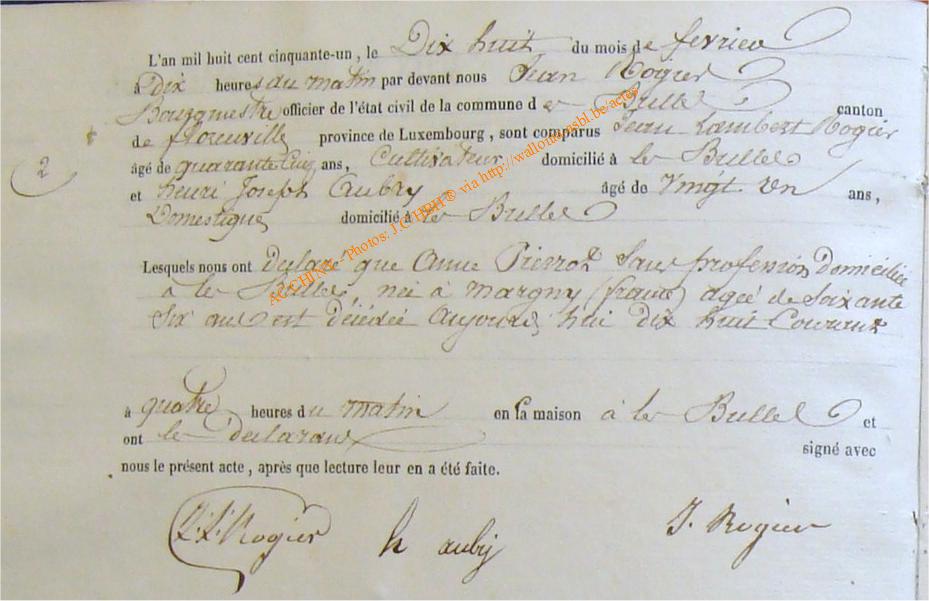 L'an mil huit cent cinquante-un, le Dix huit du mois de fevrier
à dix heures du matin par devant nous Jean Rogier
Bourgmestre officier de l'état civil de la commune de Bulles canton
de florenville province de Luxembourg, sont comparus Jean Lambert Rogier
2
âgé de quarante Cinq ans, Cultivateur domicilié à les Bulles
et henri Joseph Aubry âgé de Vingt un ans,
Domestique domicilié à les Bulles
Lesquels nous ont declaré que Anne Pierrot Sans profession Domiciliée
à les Bulles, née à Margny (france) agée de Soixante
Six ans est décédée Aujourd'hui dix huit Courant
à quatre heures du matin en sa maison à les Bulles et
ont les declarans signé avec
nous le présent acte, après que lecture leur en a été faite.
J.L. Rogier h aubry J. Rogier
via http://wallonia-asbl.be/actes